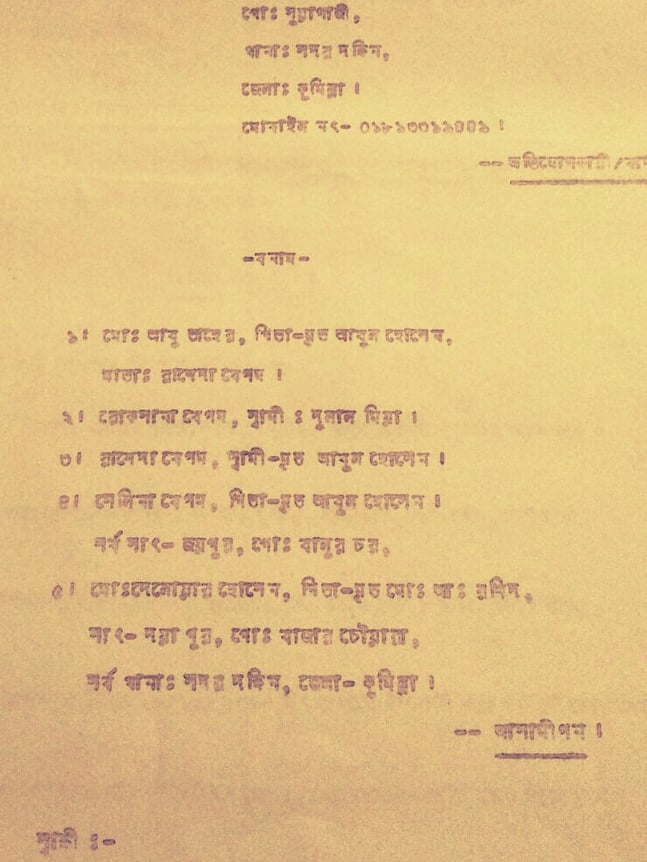 পোঃ সুয়াগাজী,
থানাঃ সদর দক্ষিন,
জেলাঃ কুমিল্লা ।
মোবাইল নং-
-- অভিযোগকারী/
-বনাম-
১। মোঃ আবু তাহের, পিতা-মৃত আবুল হোসেন,
মাতাঃ রাশেদা বেগম ।
২। রোকসানা বেগম, স্বামী : দুলাল মিয়া ।
৩। রাসেদা বেগম, স্বামী-মৃত আবুল হোসেন ।
৪। সেলিনা বেগম, পিতা-মৃত আবুল হোসেন ।
সর্ব সাং- জয়পুর, পোঃ বালুর চর,
৫। মোঃদেলোয়ার হোসেন, পিতা-মৃত মোঃ আঃ রশিদ,
সাং- নয়া পুর, পোঃ বাজার চৌয়ারা,
সর্ব থানাঃ সদর দক্ষিন, জেলা- কুমিল্লা ।
-- আসামীগন ।
স্বাক্ষী :-